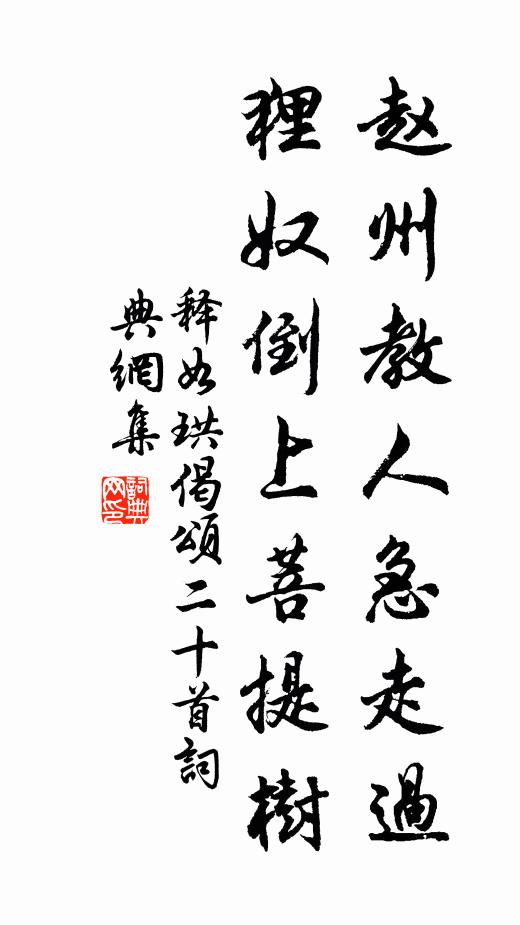 赵州教人急走過
貍奴倒上菩提樹
释如珙偈頌二十首詞
典網集
詞典网印